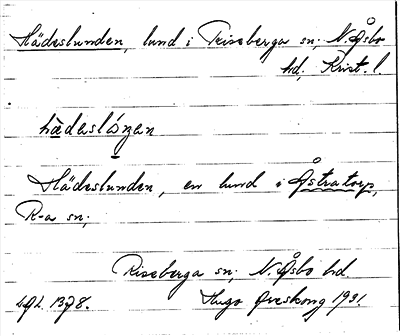 Hädeslunden, lund i Riseberga sn; N. Åsbo
hd, Krist. l.
hädeslúnen
Hädeslunden, en lund i Åstratorp,
R-a sn;
Riseberga sn; N. Åsbo hd
1378. Hugo Areskoug 1931.